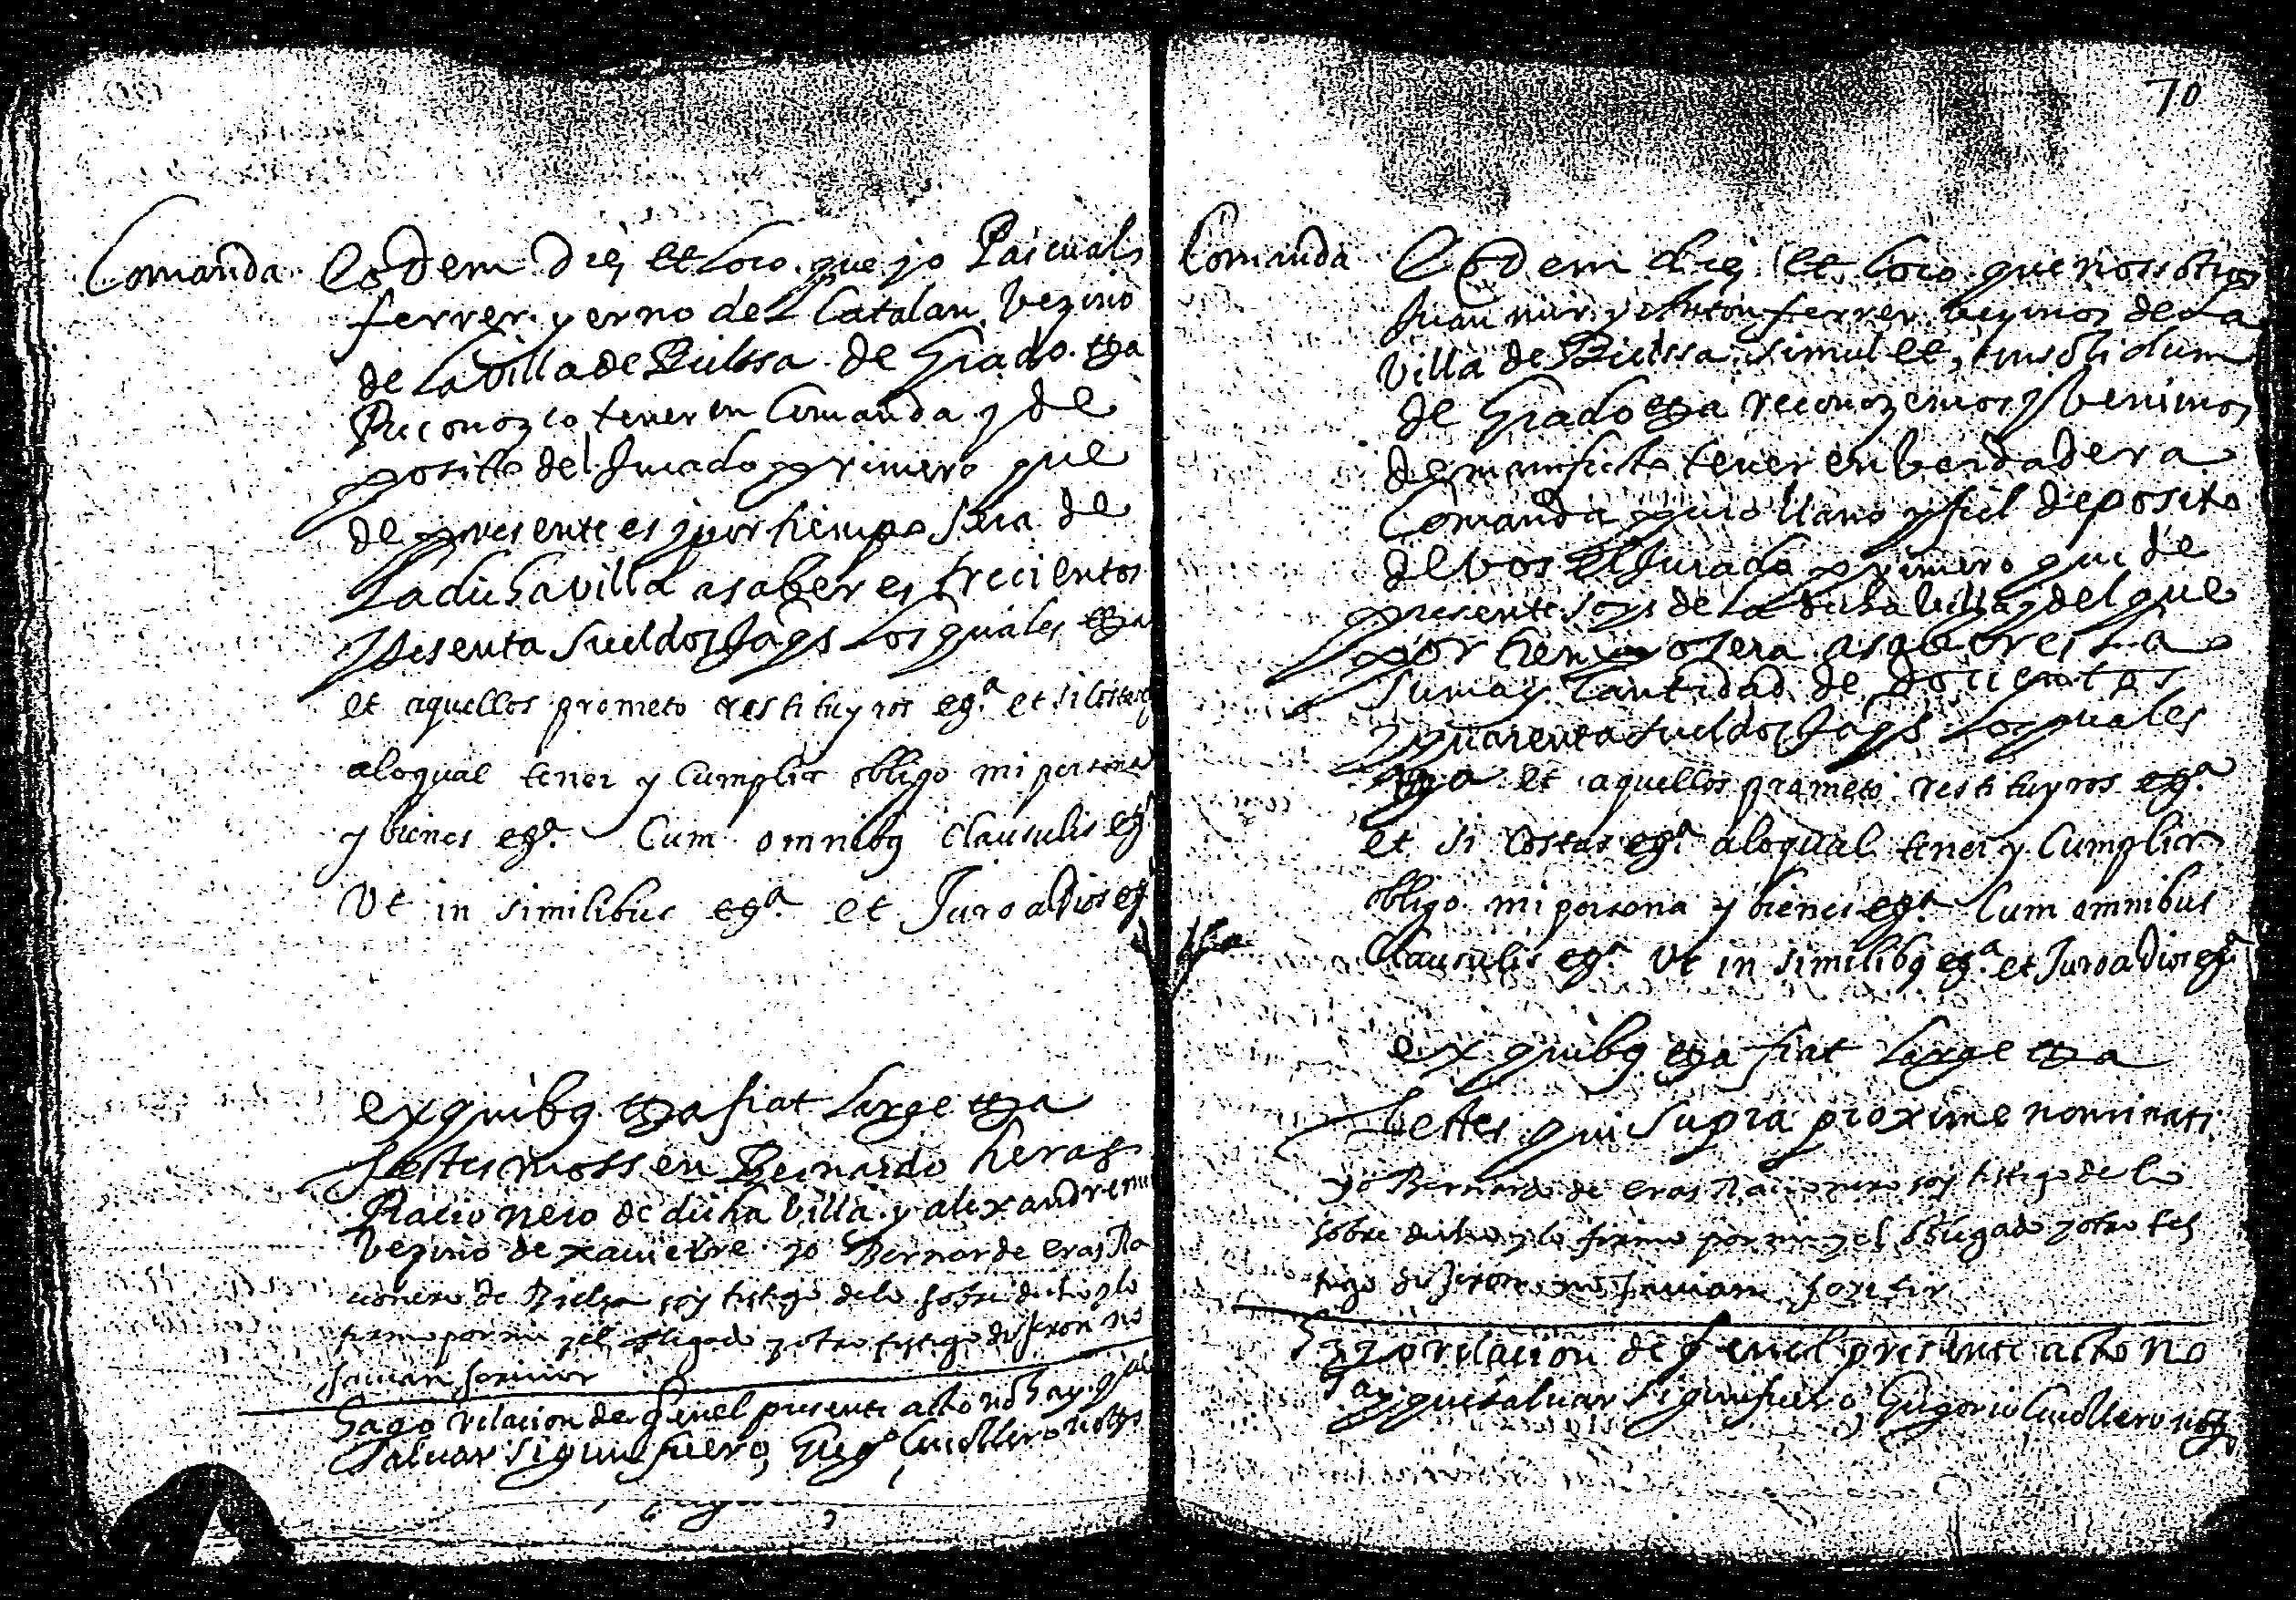 Comanda
Eodem die et loco que yo Pascual
ferrer yerno del Catalan vezino
de la Villa de Bielssa de Grado etta
Reconozco tener en Comanda y de
posito del Jurado primero que
de presente es y por tiempo sera de
La dicha villa a saber es trecientos
y sesenta sueldos Jaqs Los quales etta
et aquellos prometo restituyros egª et si costas eg
a lo qual tener y Cumplir obligo mi persona
y bienes egª Cum omnibq Clausulis eg
Ut in similibus egª et Juro a Dios egª
ex quibq etta fiat large etta
Testes mossen Bernardo heras
Racionero de dicha villa y alexandre
vezino de xavierre yo Bernar de eras Ra
cionero de Bielsa soy testigo de lo sobre dicho y lo
firmo por mi y el obligado y otro testigo dixeron no
savian scrivir
Hago relacion de q en el presente acto no hay q
salvar sigun fuero, Gregº Cavallero notº
70
Comanda
Eodem die et loco que nossotros
Juan mir y Anton ferrer vezinos de La
Villa de Bielssa simul et insolidum
de Grado etta reconozemos y venimos
de manifiesto tener en berdadera
Comanda puro llano y fiel deposito
de vos el Jurado primero que de
presente soys de la dicha villa y del que
por tiempo sera a saber es La
suma y Cantidad de docientos
y quarenta sueldos Jaqs Los quales
etta et aquellos prometo restituyros egª
et si Costas egª a lo qual tener y Cumplir
obligo mi persona y bienes egª Cum omnibus
Clausulis egª Ut in similibq egª et Juro a Dios egª
ex quibq etta fiat large etta
Testes qui supra proxime nominati
yo Bernardo de eras Racionero soy testigo de lo
sobre dicho y lo firmo por mi y el obligado y otro tes
tigo dixeron no savian screvir
Hago relacion de q en el presente acto no
ay que salvar sigun fuero, Gregorio Cavallero notº